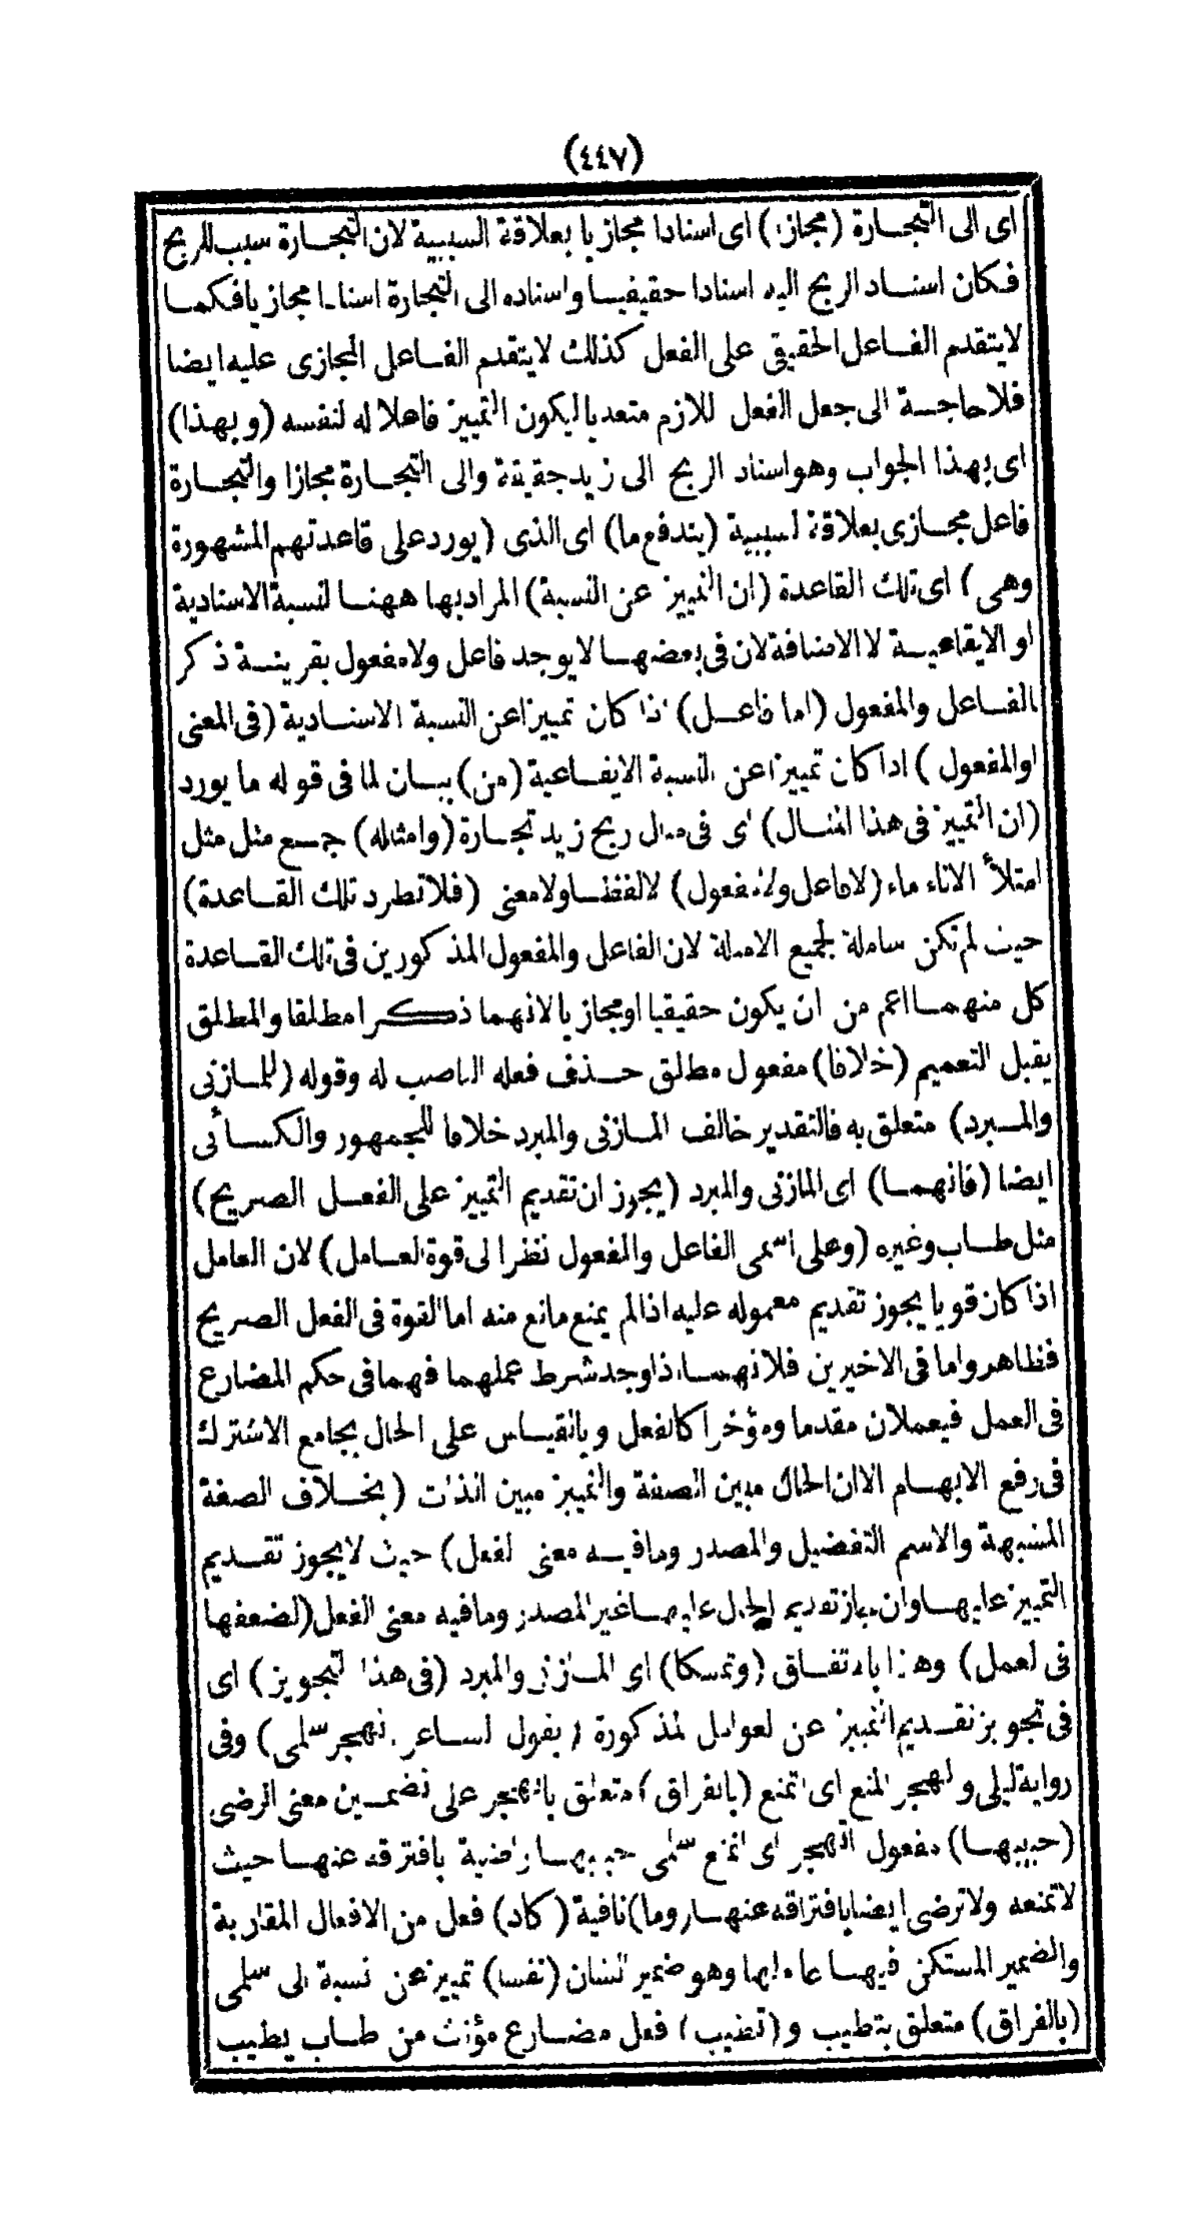 (٤٤٧)
اى الى التجارة (مجازا) اى اسنادا مجازيا بعلاقة السببية لان التجارة سبب للربح
فكان اسناد الربح اليه اسنادا حقيقيا واسناده الى التجارة اسنادا مجازيا فكما
لايتقدم الفاعل الحقيقى على الفعل كذلك لايتقدم الفاعل المجازى عليه ايضا
فلا حاجة الى جعل الفعل اللازم متعديا ليكون التمييز فاعلا له لنفسه (وبهذا)
اى بهذا الجواب وهو اسناد الربح الى زيد حقيقة والى التجارة مجازا والتجارة
فاعل مجازى بعلاقة السببية (يندفع ما) اى الذى (يورد على قاعدتهم المشهورة
وهى) اى تلك القاعدة (ان التمييز عن النسبة) المراد بها ههنا النسبة الاسنادية
او الايقاعية لا الاضافة لان فى بعضها لايوجد فاعل ولا مفعول بقرينة ذكر
الفاعل والمفعول (اما فاعل) اذا كان تمييزا عن النسبة الاسنادية (فى المعنى
او المفعول) اذا كان تمييزا عن النسبة الايقاعية (من) بيان لما فى قوله ما يورد
(ان التمييز فى هذا المثال) اى فى مثال ربح زيد تجارة (وامثاله) جمع مثل مثل
امتلأ الاناء ماء (لافاعل ولامفعول) لالفظا ولامعنى (فلاتطرد تلك القاعدة)
حيث لم تكن شاملة لجميع الامثلة لان الفاعل والمفعول المذكورين فى تلك القاعدة
كل منهما اعم من ان يكون حقيقيا اومجازيا لانهما ذكرا مطلقا والمطلق
يقبل التعميم (خلافا) مفعول مطلق حذف فعله الناصب له وقوله (للمازنى
والمبرد) متعلق به فالتقدير خالف المازنى والمبرد خلافا للجمهور والكسائى
ايضا (فانهما) اى المازنى والمبرد (يجوزان تقديم التمييز على الفعل الصريح)
مثل طاب وغيره (وعلى اسمى الفاعل والمفعول نظرا الى قوة العامل) لان العامل
اذا كان قويا يجوز تقديم معموله عليه اذا لم يمنع مانع منه اما القوة فى الفعل الصريح
فظاهر واما فى الاخيرين فلانهما اذا وجد شرط عملهما فهما فى حكم المضارع
فى العمل فيعملان مقدما ومؤخرا كالفعل وبالقياس على الحال بجامع الاشتراك
فى رفع الابهام الا ان الحال مبين الصفة والتمييز مبين الذات (بخلاف الصفة
المشبهة والاسم التفضيل والمصدر ومافيه معنى الفعل) حيث لايجوز تقديم
التمييز عليها وان جاز تقديم الحال عليها غير المصدر ومافيه معنى الفعل (لضعفها
فى العمل) وهذا بالاتفاق (وتمسكا) اى المازنى والمبرد (فى هذا التجويز) اى
فى تجويز تقديم التمييز عن العوامل المذكورة (بقول الشاعر. اتهجر سلمى) وفى
رواية ليلى والهجر المنع اى اتمنع (بالفراق) متعلق باتهجر على تضمين معنى الرضى
(حبيبها) مفعول اتهجر اى اتمنع سلمى حبيبها راضية بافترقه عنها حيث
لاتمنعه ولاترضى ايضا بافتراقه عنها (وما) نافية (كاد) فعل من الافعال المقاربة
والضمير المستكن فيها عامل لها وهو ضمير الشان (نفسا) تمييز عن نسبة الى سلمى
(بالفراق) متعلق بتطيب و(تطيب) فعل مضارع مؤنث من طاب يطيب